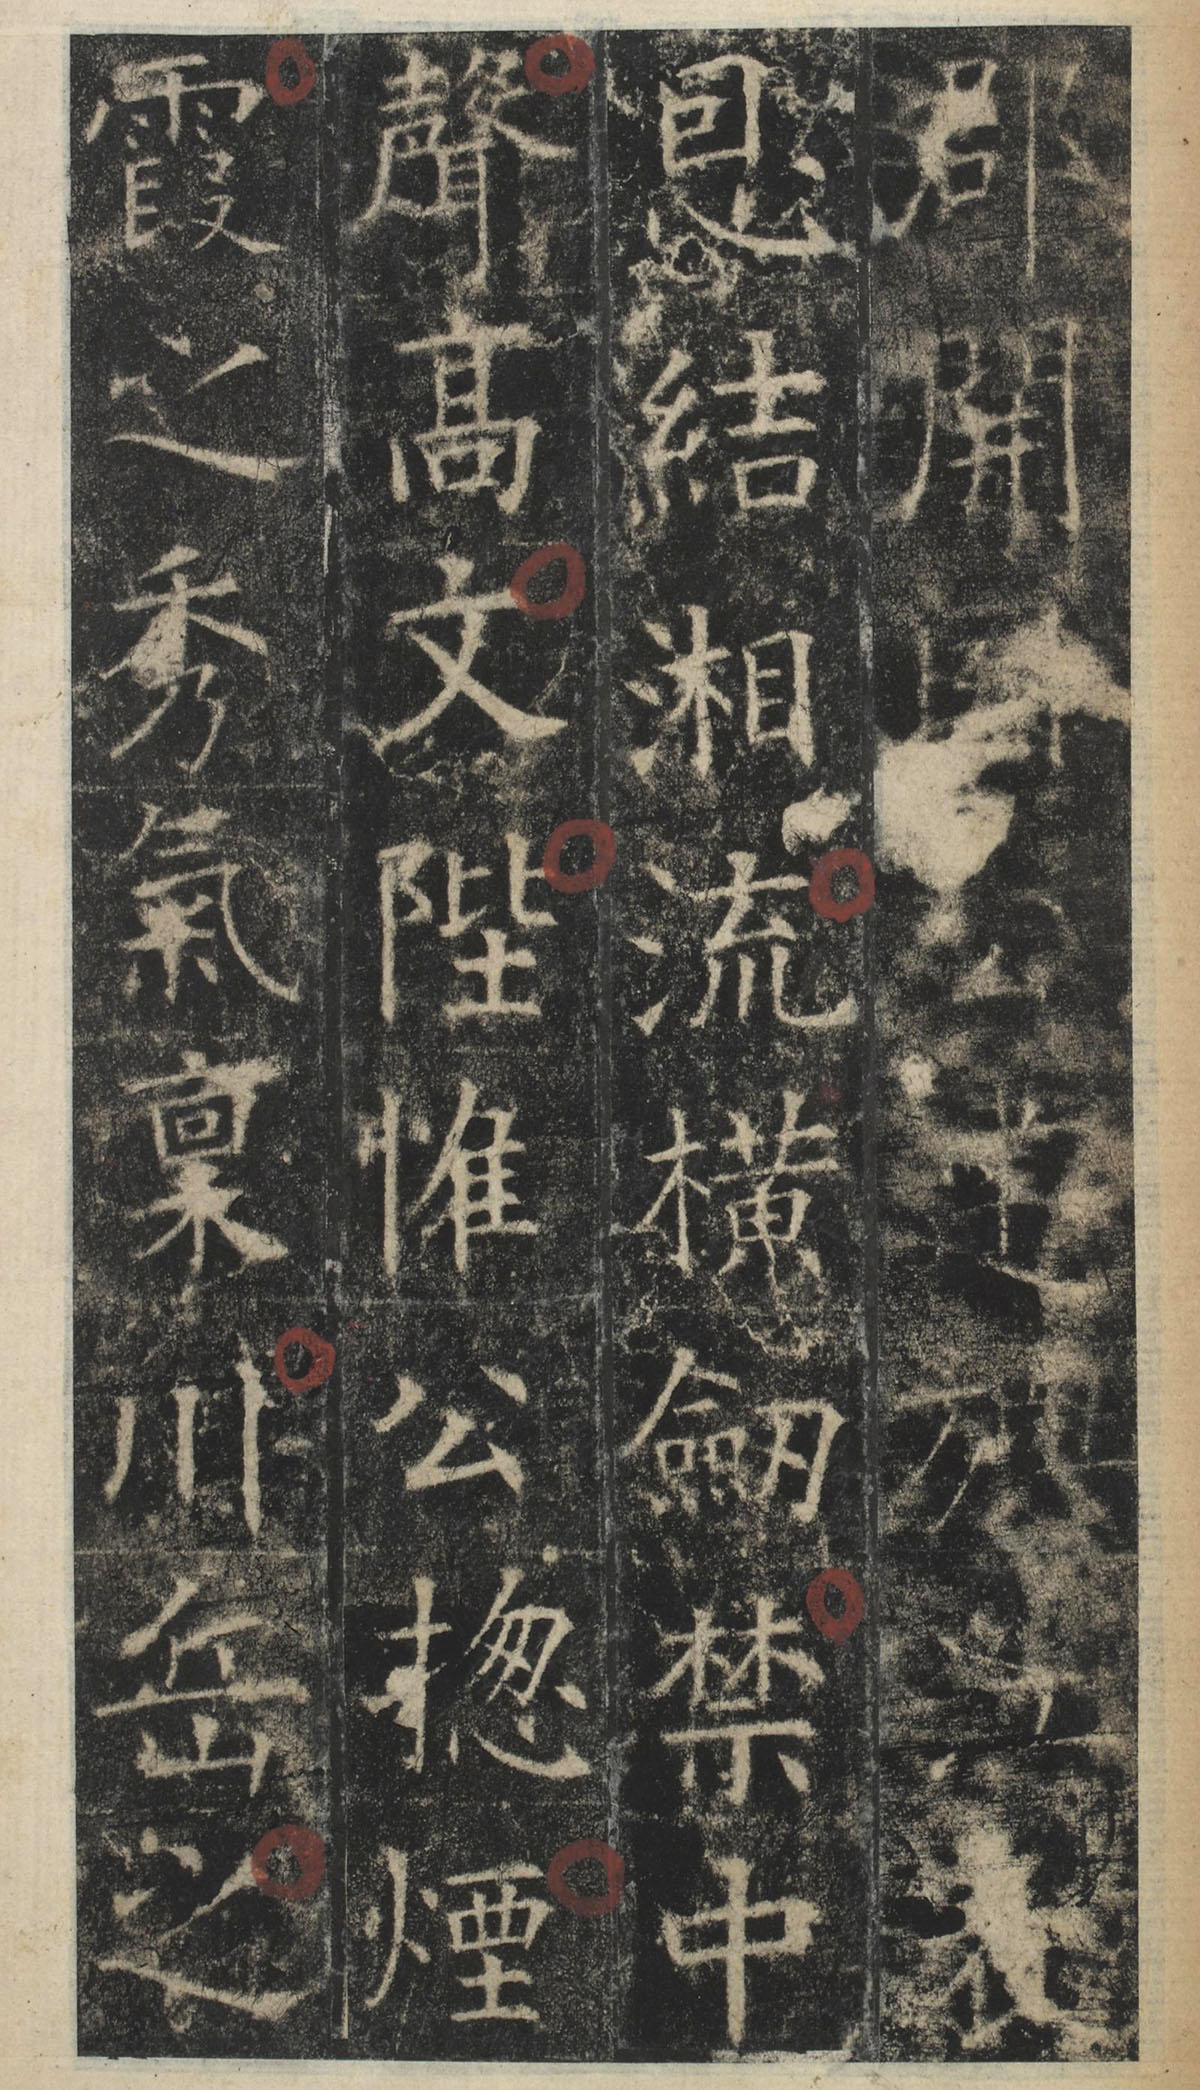 郡開
恩結湘流橫劒禁中
聲高文陛惟公揔煙
霞之秀氣稟川岳之